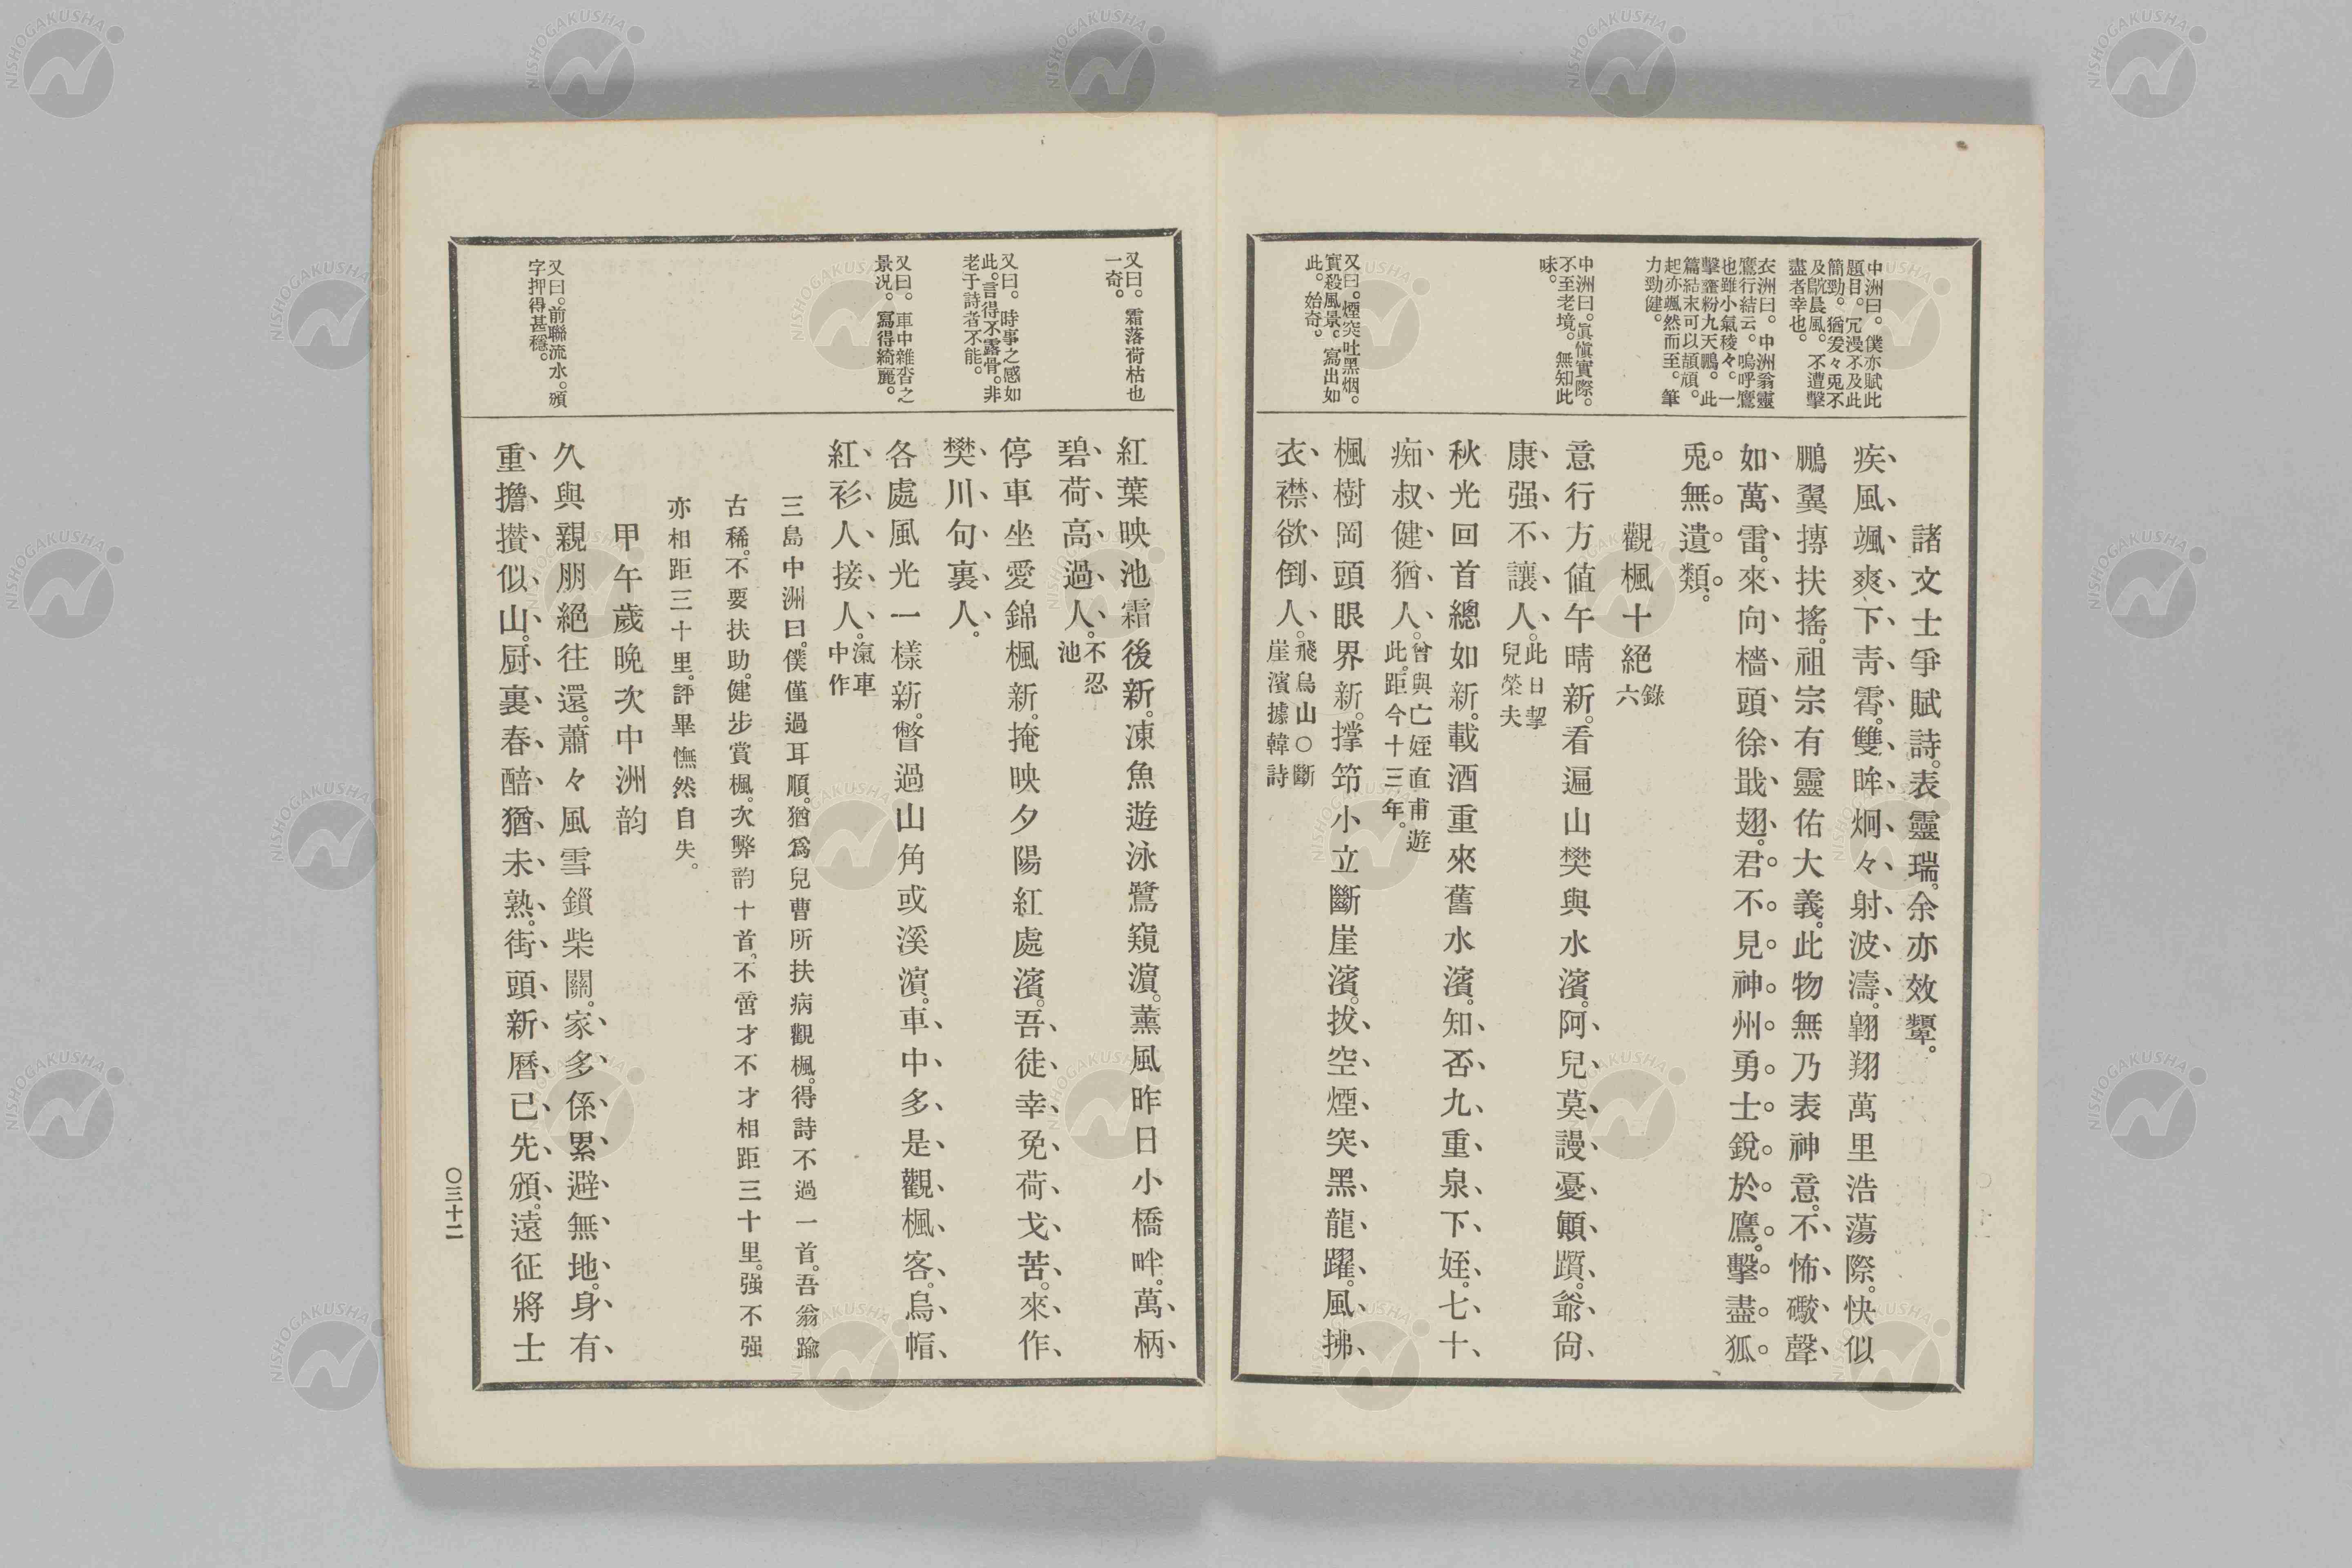 中洲曰。僕亦賦此
題目。冗漫不及此
簡勁。猶爰々兎不
及鴥晨風。不遭擊
盡者幸也。
衣洲曰。中洲翁靈
鷹行結云。嗚呼鷹
也雖小氣稜々。一
擊虀粉九天鵬。此
篇結末可以頡頏。
起亦颯然而至。筆
力勁健。
中洲曰。眞愼實際。
不至老境。無知此
味。
又曰。煙突吐黑烟。
實殺風景。寫出如
此。始奇。
諸文士爭賦詩。表靈瑞。余亦效顰。
疾風颯爽下靑霄。雙眸炯々射波濤。翺翔萬里浩蕩際。快似
鵬翼摶扶搖。祖宗有靈佑大義。此物無乃表神意。不怖礮聲
如萬雷。來向檣頭徐戢翅。君不見神州勇士銳於鷹。擊盡狐
兎無遺類。
觀楓十絕 錄六
意行方値午晴新。看遍山樊與水濱。阿兒莫謾憂顚躓。爺尙
康强不讓人。此日挈兒榮夫
秋光回首總如新。載酒重來舊水濱。知否九重泉下姪。七十
痴叔健猶人。曾與亡姪直甫遊此。距今十三年。
楓樹岡頭眼界新。撑筇小立斷崖濱。拔空煙突黑龍躍。風拂
衣襟欲倒人。飛鳥山〇斷崖濱據韓詩
又曰。霜落荷枯也
一奇。
又曰。時事之感如
此。言得不露骨。非
老于詩者不能。
又曰。車中雜沓之
景况。寫得綺麗。
又曰。前聯流水。頒
字押得甚穩。
紅葉映池霜後新。凍魚遊泳鷺窺濵。薰風昨日小橋畔。萬柄
碧荷高過人。不忍池
停車坐愛錦楓新。掩映夕陽紅處濱。吾徒幸免荷戈苦。來作
樊川句裏人。
各處風光一樣新。瞥過山角或溪濵。車中多是觀楓客。烏帽
紅衫人接人。滊車中作
三島中洲曰。僕僅過耳順。猶爲兒曹所扶病觀楓。得詩不過一首。吾翁踰
古稀。不要扶助。健步賞楓。次弊韵十首。不啻才不才相距三十里。强不强
亦相距三十里。評畢憮然自失。
甲午歲晩次中洲韵
久與親朋絕往還。蕭々風雪鎖柴關。家多係累避無地。身有
重擔攢似山。厨裏春醅猶未熟。街頭新曆已先頒。遠征將士
〇三十二